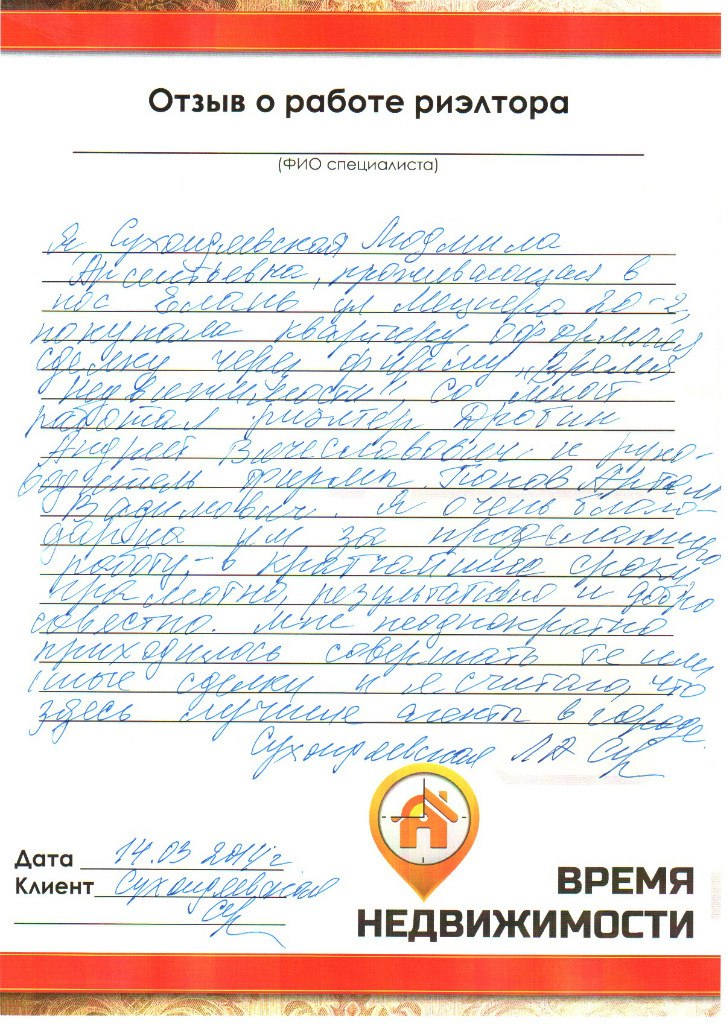 Отзыв о работе риэлтора
(ФИО специалиста)
Я Людмила
Арсентьевна, проживающая в
пос Елань ул 20-2,
покупала квартиру оформляла
сделку через фирму „Время
недвижимости", со мной
работал риэлтер Дробин
Андрей Вячеславович и руко-
водитель фирмы Попов Артем
Вадимович. Я очень благо-
дарна им за проделанную
работу,- в кратчайшие сроки,
грамотно, результативно и добро
совестно. Мне неоднократно
приходилось совершать те или
иные сделки и я считаю, что
здесь лучшие агенты в городе.
ЛА
Дата 14.03 2014 г
Клиент
ВРЕМЯ
НЕДВИЖИМОСТИ